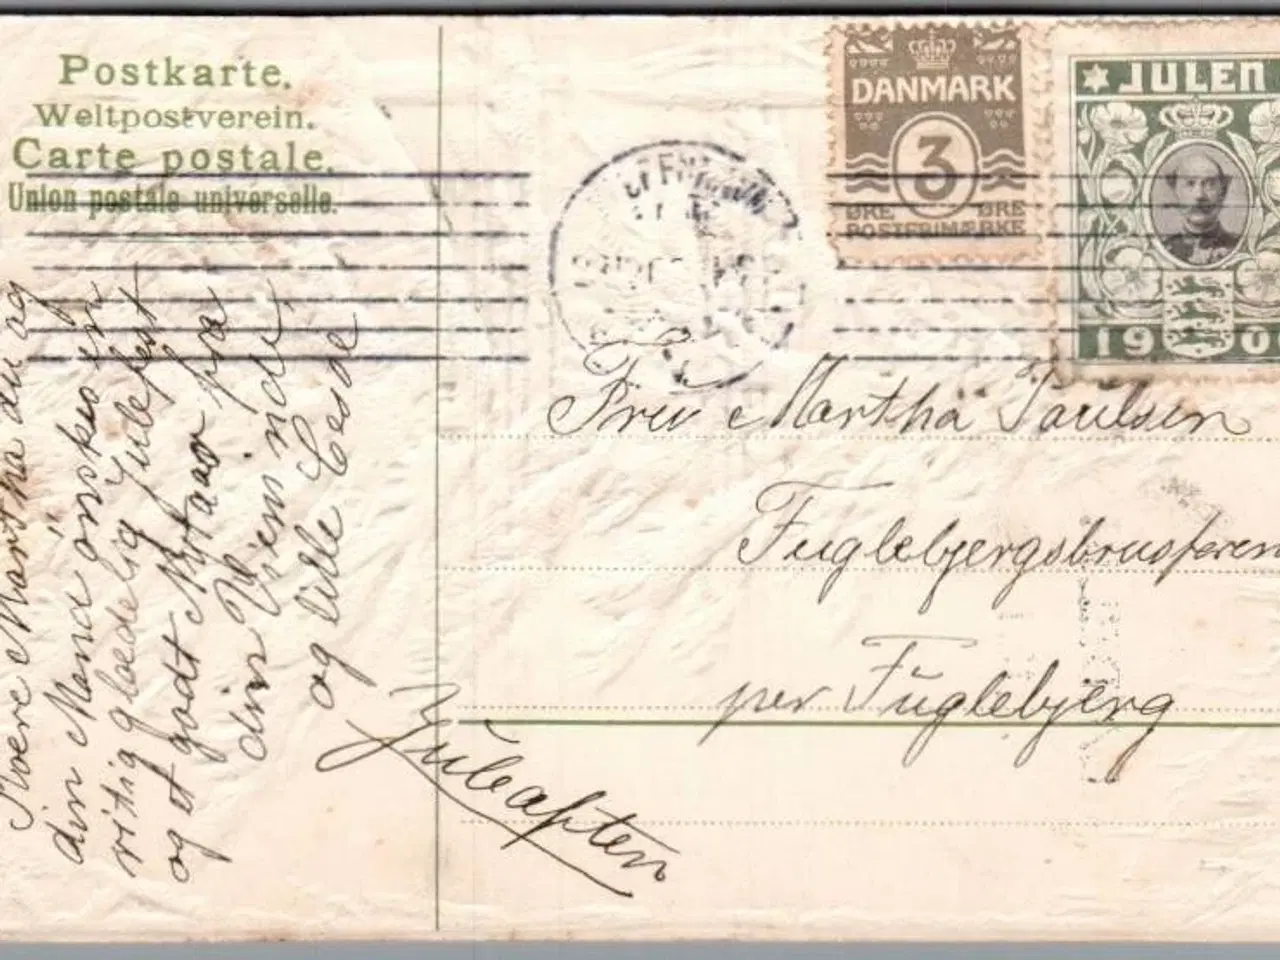 Postkarte.
Weltpostverein.
Carte postale.
Union postale universelle.
DANMARK
3
ØRE ØRE
POSTFRIMÆRKE
JULEN
190
Kære Martha du og
din Mand ønskes en
rigtig glædelig Julefest
og et godt Nytaar fra
din Veninde
og lille
Juleaften
Fru Martha Paulsen
Fuglebjergsbrugsforen
per Fuglebjerg